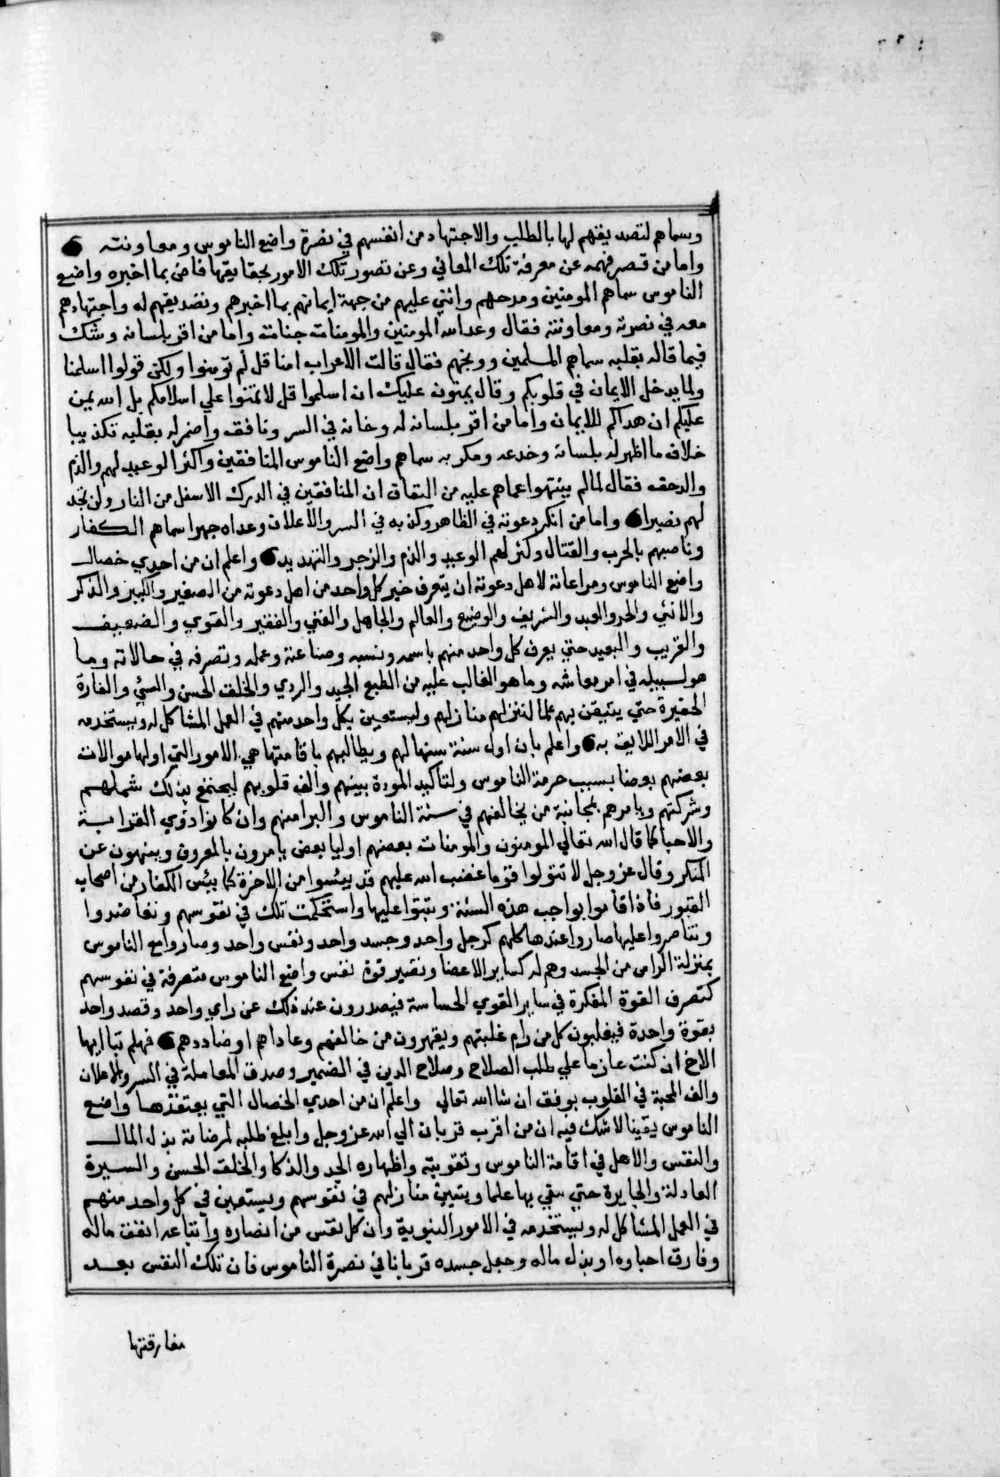 وسماهم لتصديقهم لها بالطلب والاجتهاد من انفسهم في نصرة واضع الناموس ومعاونته
واما من قصر فهمه عن معرفة تلك المعاني وعن تصور تلك الامور بحقايقها فامن بما اخبره واضع
الناموس سماهم المومنين ومدحهم واثني عليهم من جهة ايمانهم بما اخبرهم وتصديقهم له واجتهادهم
معه في نصرته ومعاونته فقال وعد الله المومنين والمومنات جنات واما من اقر بلسانه وشك
فيما قاله بقلبه سماهم المسلمين ووبخهم فقال قالت الاعراب امنا قل لم تومنوا ولكن قولوا اسلمنا
ولما يدخل الايمان في قلوبكم وقال يمنون عليك ان اسلموا قل لا تمنوا علي اسلامكم بل الله يمن
عليكم ان هداكم للايمان واما من اقر بلسانه له وخانه في السر ونافق واضمر له بقلبه تكذيبا
خلاف ما اظهر له بلسانه وخدعه ومكر به سماهم واضع الناموس المنافقين واكثر الوعيد لهم والذم
فقال لما لم ينتهوا عما هم عليه من النفاق ان المنافقين في الدرك الاسفل من النار ولن تجد
لهم نصيرا واما من انكر دعوته في الظاهر وكذبه في السر والاعلان وعداه جهرا سماهم الكفار
وناصبهم بالحرب والقتال وكثر لهم الوعيد والذم والزجر والتهديد واعلم ان من احدي خصال
واضع الناموس ومراعاته لاهل دعوته ان يتعرف خبر كل واحد من اهل دعوته من الصغير والكبير والذكر
والانثي والحر والعبد والشريف والوضيع والعالم والجاهل والغني والفقير والقوي والضعيف
والقريب والبعيد حتي يعرف كل واحد منهم باسمه ونسبه وصناعته وعمله وتصرفه في حالاته وما
هو لسبيله في امر معاشه وما هو الغالب عليه من الطبع الجيد والردي والخلق الحسن والسيئ والعادة
الحقيرة حتي يتيقن بهم علما لتنزلهم منازلهم وليستعين بكل واحد منهم في العمل المشاكل له ويستخدمه
في الامر اللايق به واعلم بان اول سنة سنها لهم ويطالبهم باقامتها هي الامور التي اولها موالات
بعضهم بعضا بسبب حرمة الناموس ولتاكيد المودة بينهم والف قلوبهم ليجتمع بذلك شملهم
وشركتهم ويامرهم بمجانبة من يخالفهم في سنة الناموس والبرا منهم وان كانوا ذوي القرابة
والاحبا كما قال الله تعالي المومنون والمومنات بعضهم اوليا بعض يامرون بالمعروف وينهون عن
المنكر وقال عز وجل لا تتولوا قوما غضب الله عليهم قد يئسوا من الاخرة كما يئس الكفار من اصحاب
القبور فاذا قاموا بواجب هذه السنة وثبتوا عليها واستحكمت تلك في نفوسهم وتعاضدوا
وتناصروا عليها صاروا عندها كلهم كرجل واحد وجسد واحد ونفس واحد وصار واضع الناموس
بمنزلة الراس من الجسد وهم له كساير الاعضا وتصير قوة نفس واضع الناموس متصرفة في نفوسهم
كتصرف القوة المفكرة في ساير القوي الحساسة فيصدرون عند ذلك عن راي واحد وقصد واحد
بقوة واحدة فيغلبون كل من رام غلبتهم ويقهرون من خالفهم وعاداهم او ضاددهم فهلم بنا ايها
الاخ ان كنت عازما علي طلب الصلاح وصلاح الدين في الضمير وصدق المعاملة في السر والاعلان
والف المحبة في القلوب بوفق ان شا الله تعالي واعلم ان من احدي الخصال التي يعتقدها واضع
الناموس يقينا لا شك فيه ان من اقرب قربان الي الله عز وجل وابلغ طلبه لمرضاته بذل المال
والنفس والاهل في اقامة الناموس وتقويته واظهاره الجد والذكا والخلق الحسن والسيرة
العادلة والجايرة حتي بها علما ويتبين منازلهم في نفوسهم ويستعين في كل واحد منهم
في العمل المشاكل له ويستخدمه في الامور الدنيوية وان كل نفس من انصاره واتباعه انفقت ماله
وفارق احباوه او بذل ماله وجعل جسده قربانا في نصرة الناموس فان تلك النفس بعد
مفارقتها